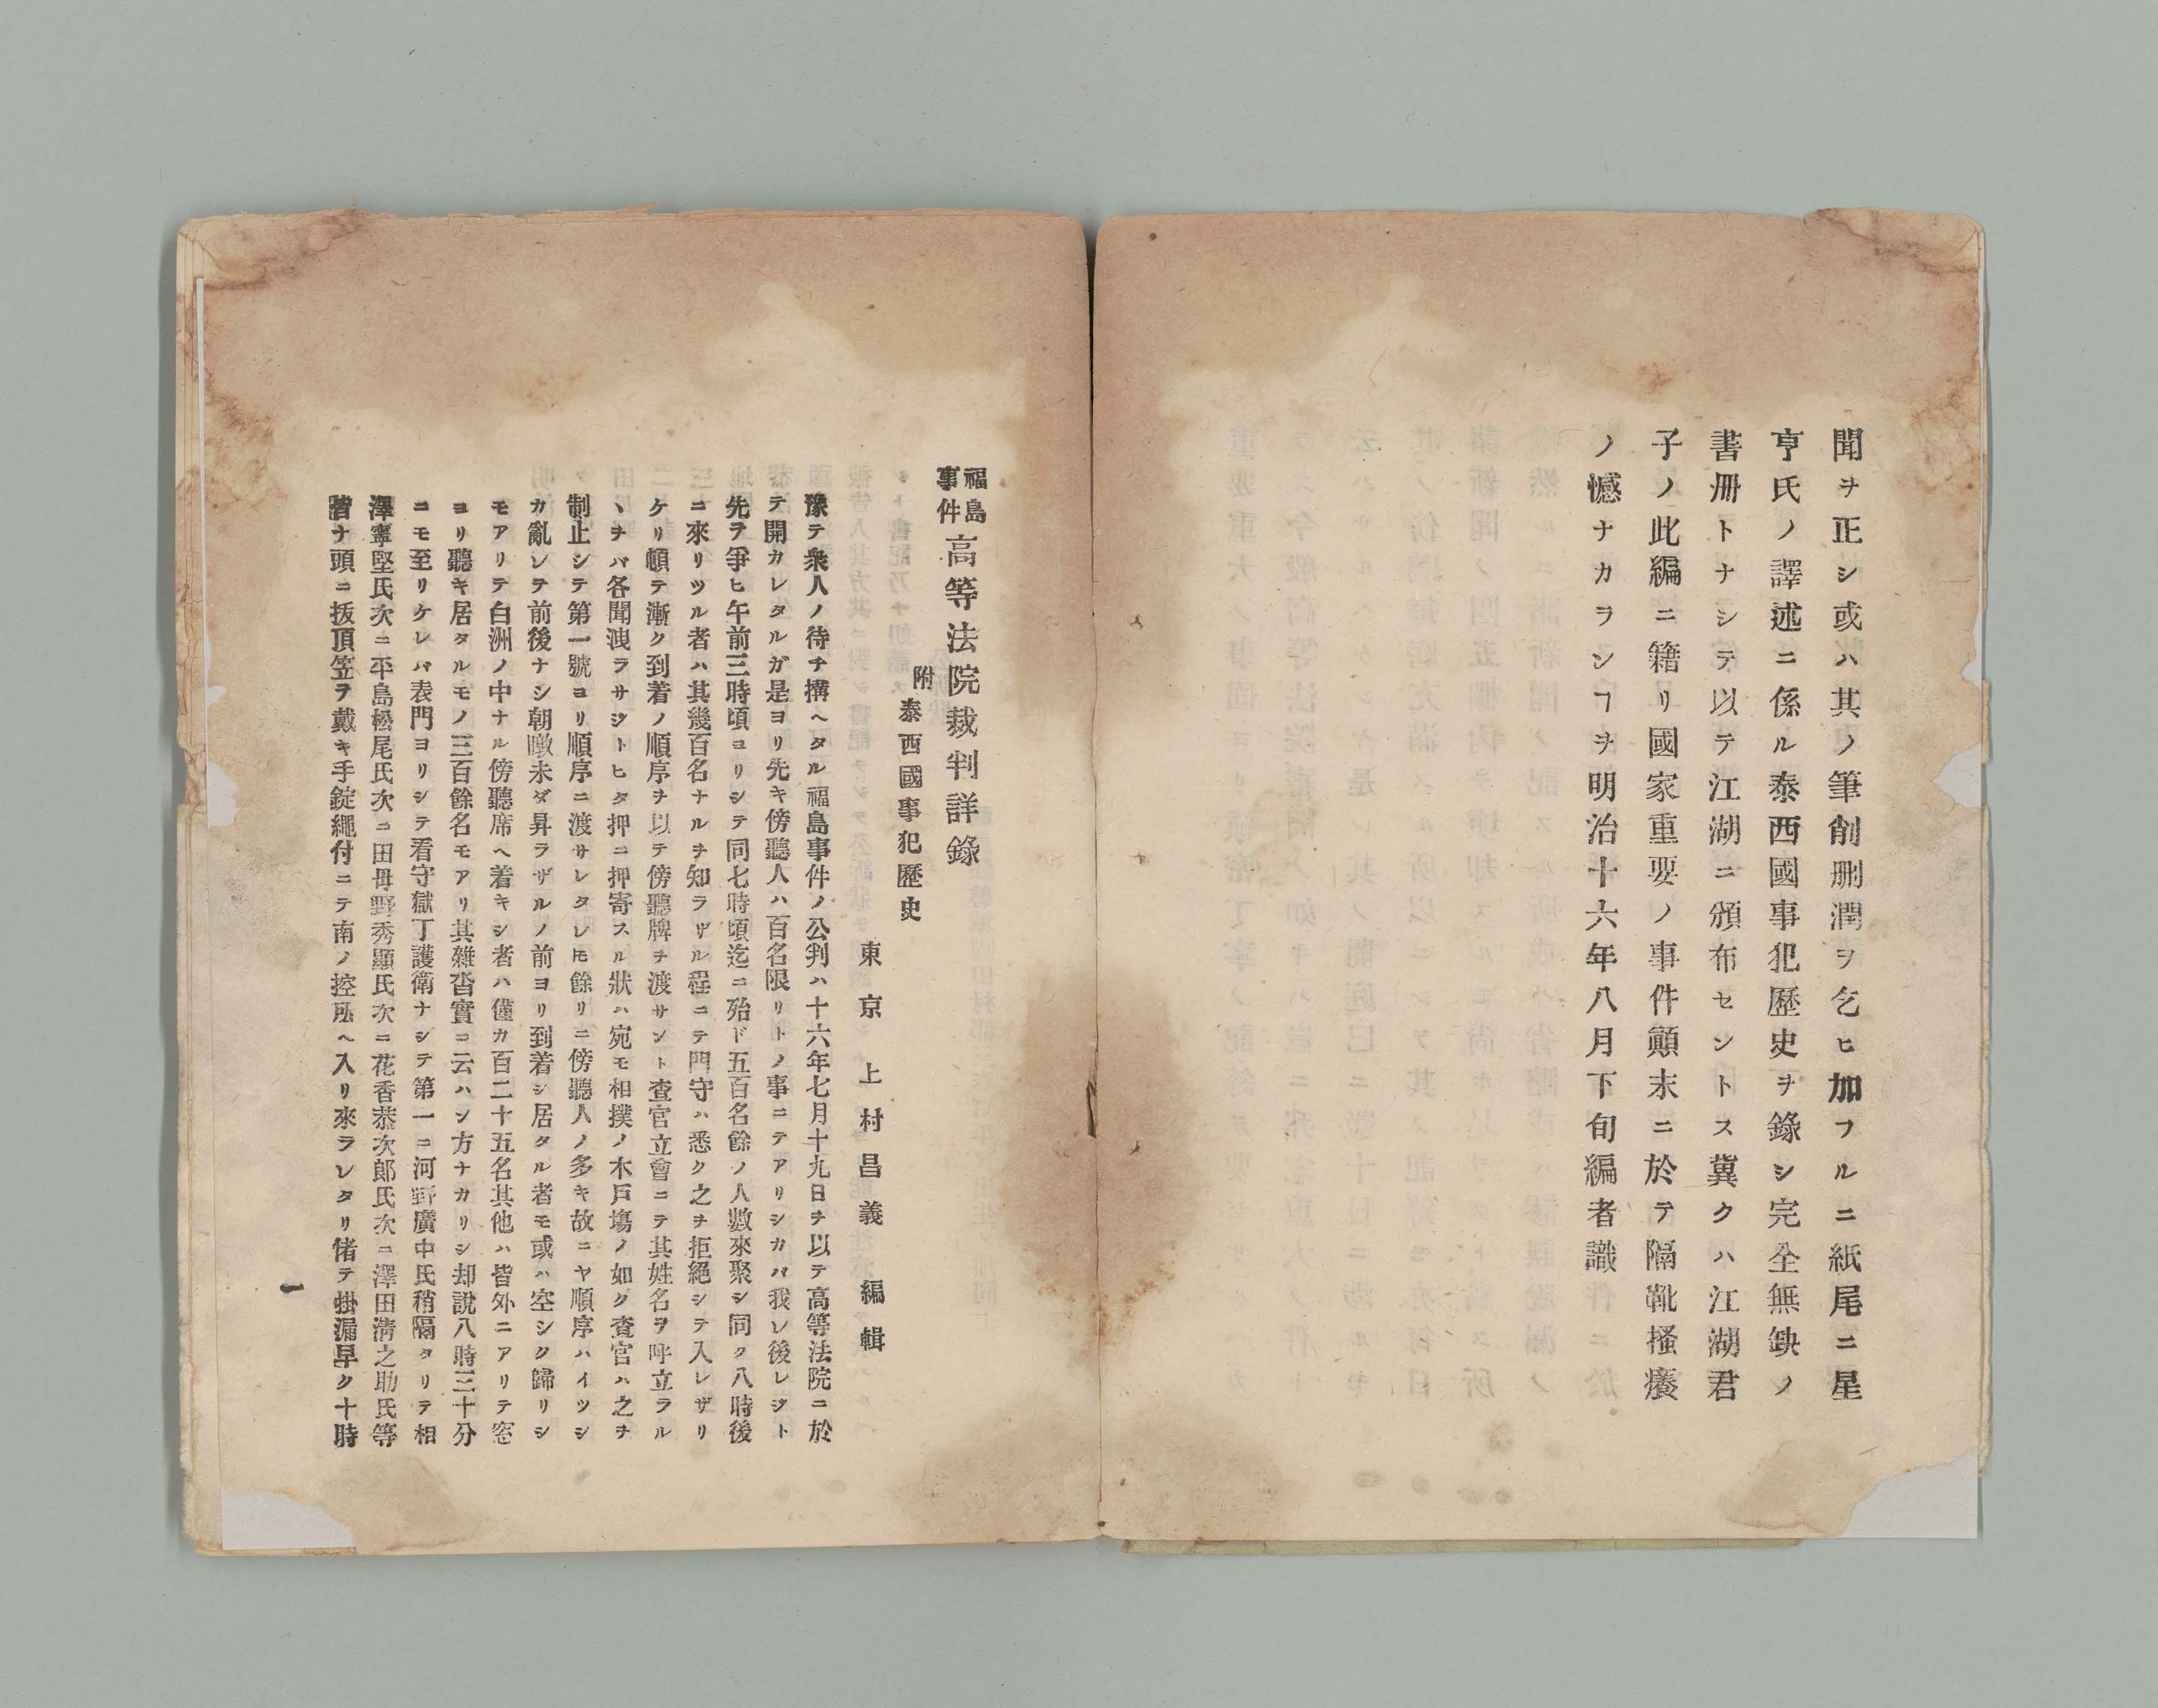 聞ヲ正シ或ハ其ノ筆削刪潤ヲ乞ヒ加フルニ紙尾ニ星
亨氏ノ譯述ニ係ル泰西國事犯歷史ヲ錄シ完全無缺ノ
書冊トナシテ以テ江湖ニ頒布セシトス冀クハ江湖君
子ノ此編ニ籍リ國家重要ノ事件顚末ニ於テ隔靴搔癢
ノ憾ナカラシヿヲ明治十六年八月下旬編者識
福島事件高等法院裁判詳錄
附泰西國事犯歷史
東京 上村昌義 編輯
豫テ衆人ノ待チ搆ヘタル福島事件ノ公判ハ十六年七月十九日ヲ以テ高等法院ニ於
テ開カレタルガ是ヨリ先キ傍聽人ハ百名限リトノ事ニテアリシカバ我レ後レジト
先ヲ爭ヒ午前三時頃ヨリシテ同七時頃迄ニ殆ド五百名餘ノ人數來聚シ同ク八時後
ニ來リツル者ハ其幾百名ナルヲ知ラザル程ニテ門守ハ悉ク之ヲ拒絕シテ入レザリ
ケリ頓テ漸ク到着ノ順序ヲ以テ傍聽牌ヲ渡サント查官立會ニテ其姓名ヲ呼立ラル
ヽヲバ各聞洩ラサジトヒタ押ニ押寄スル狀ハ宛モ相撲ノ木戶塲ノ如ク查官ハ之ヲ
制止シテ第一號ヨリ順序ニ渡サレタレ𪜈餘リニ傍聽人ノ多キ故ニヤ順序ハイツシ
カ亂レテ前後ナシ朝暾未ダ昇ラザルノ前ヨリ到着シ居タル者モ或ハ空シク歸リシ
モアリテ白洲ノ中ナル傍聽席ヘ着キシ者ハ僅カ百二十五名其他ハ皆外ニアリテ窓
ヨリ聽キ居タルモノ三百餘名モアリ其雜沓實ニ云ハン方ナカリシ却說八時三十分
ニモ至リケレバ表門ヨリシテ看守獄丁護衛ナシテ第一ニ河野廣中氏稍隔タリテ相
澤寧堅氏次ニ平島松尾氏次ニ田母野秀顯氏次ニ花香恭次郎氏次ニ澤田淸之助氏等
皆ナ頭ニ扳頂笠ヲ戴キ手錠繩付ニテ南ノ控所ヘ入リ來ラレタリ偖テ掛漏早ク十時
一